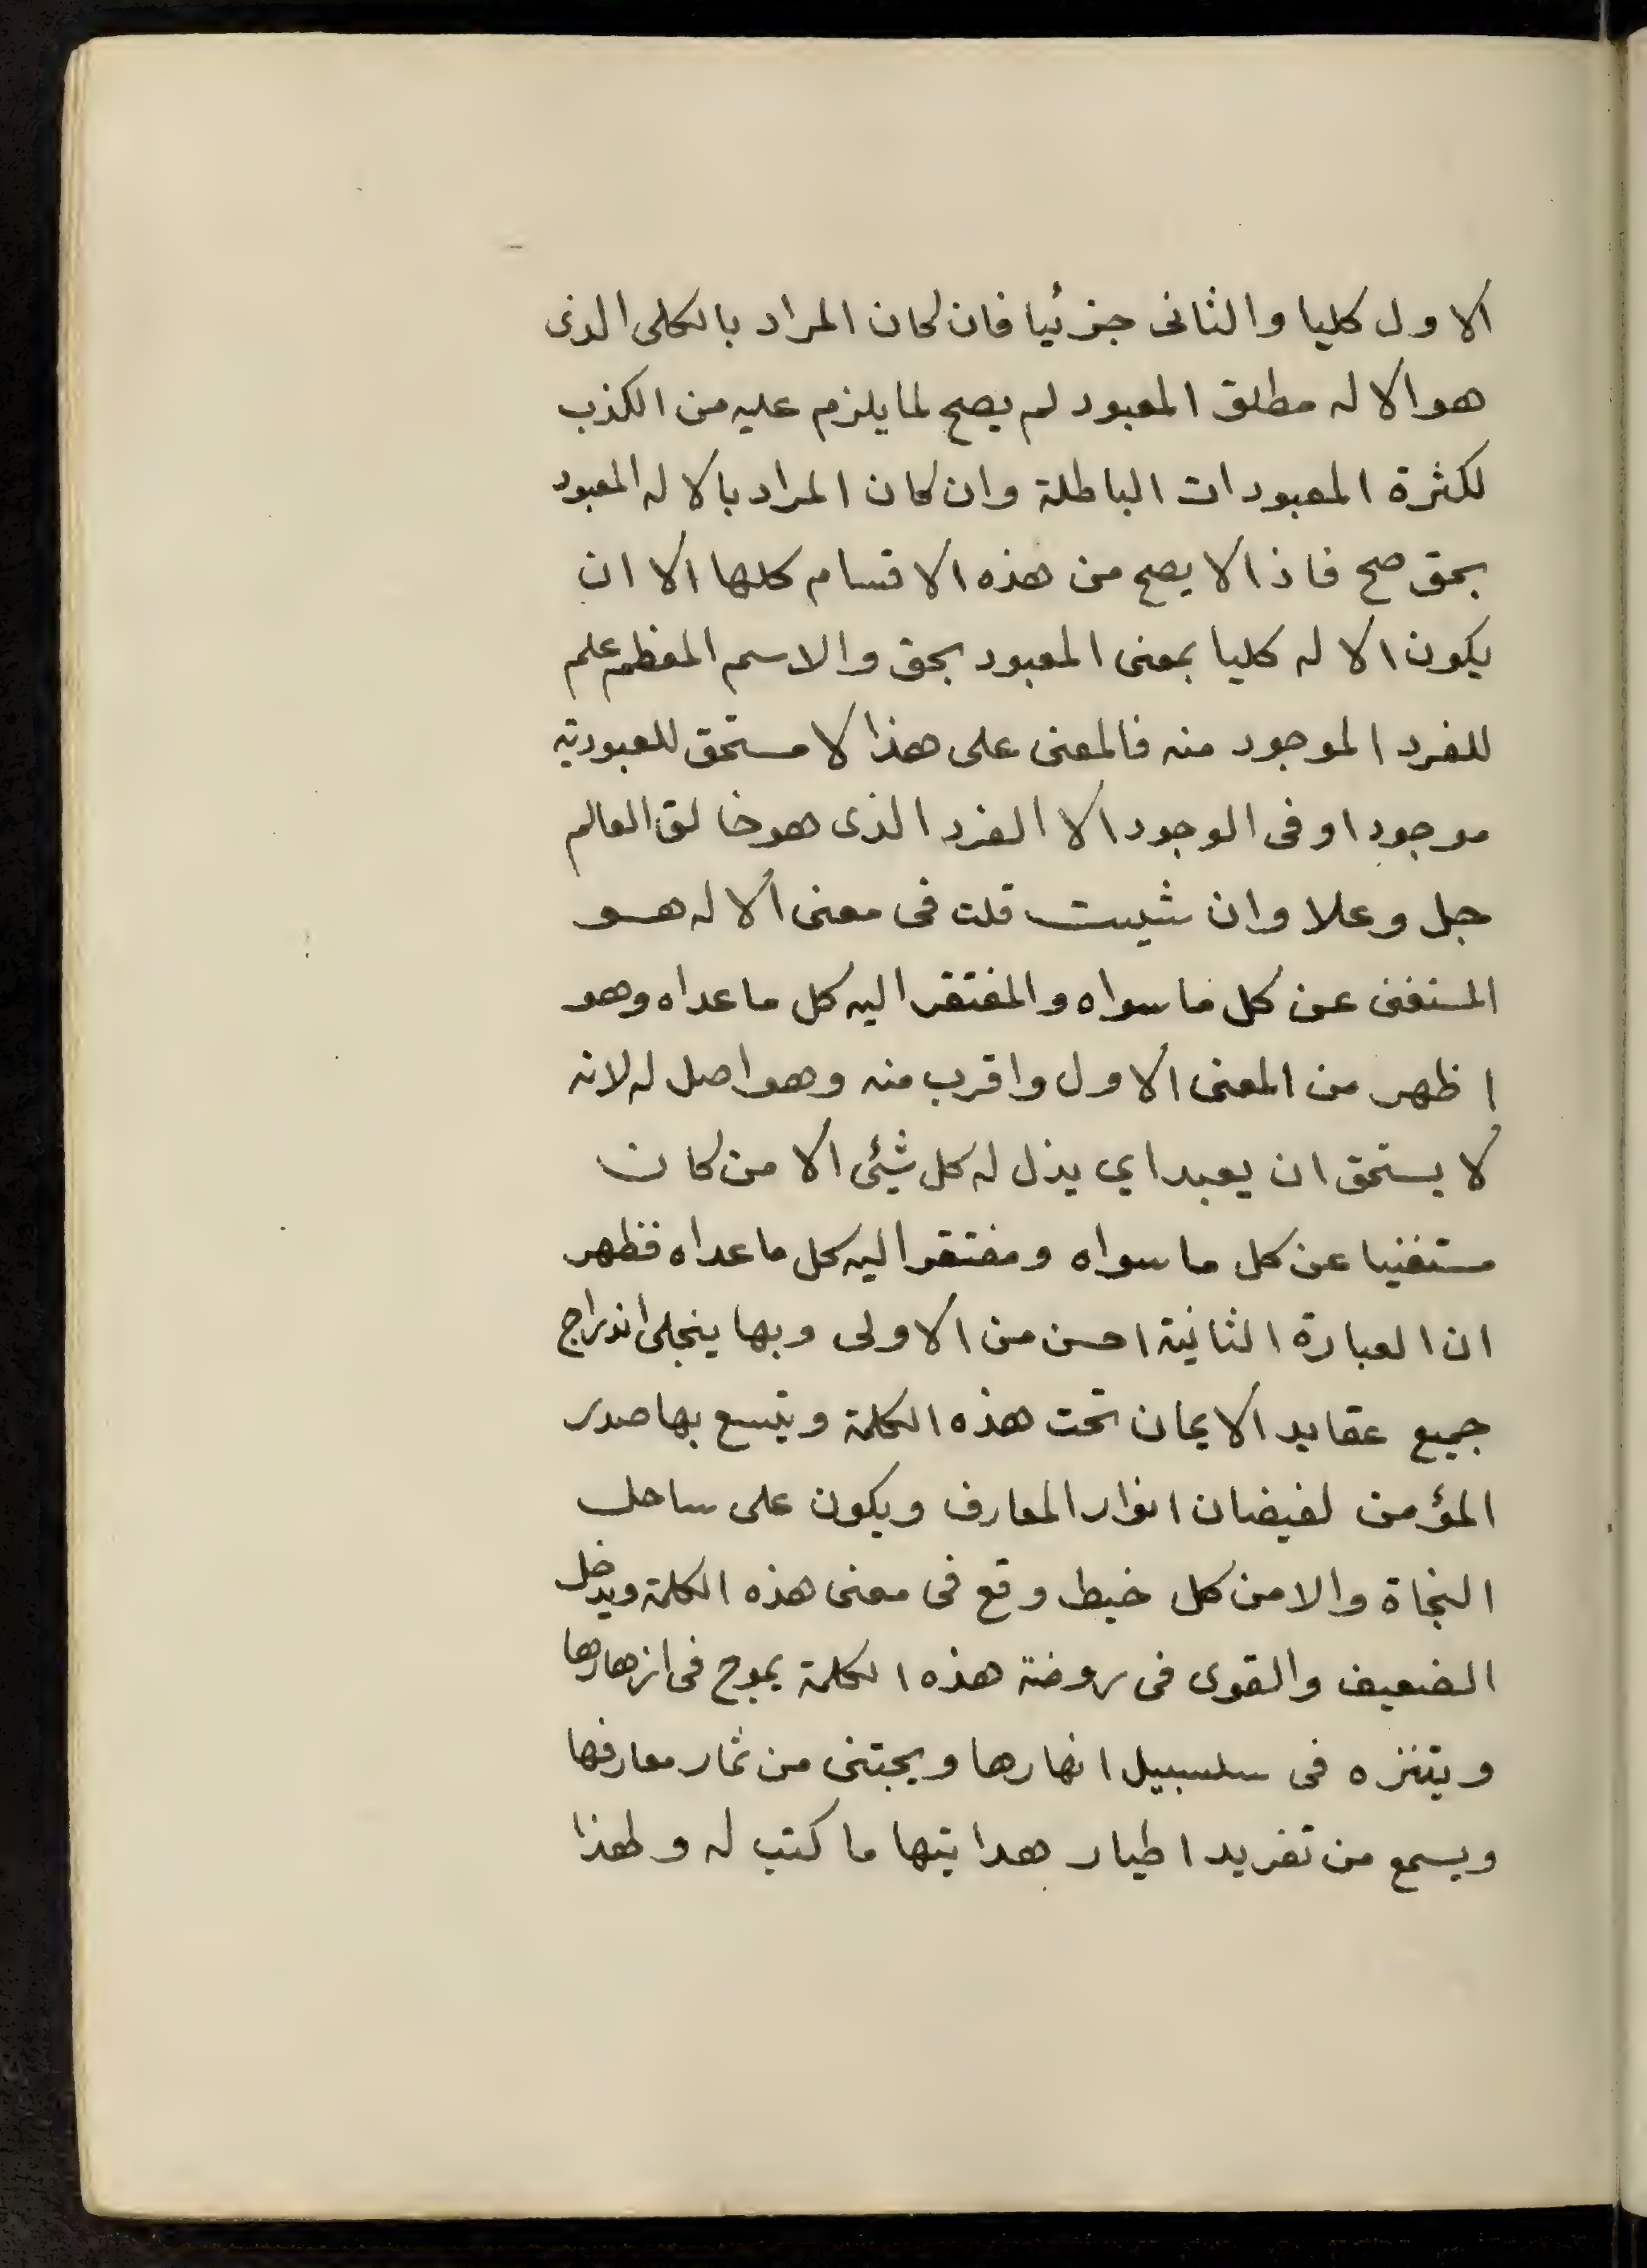 الاول كليا والثانى جزئيا فان كان المراد بالكلى الذى
هو الاله مطلق المعبود لم يصح لما يلزم عليه من الكذب
لكثرة المعبودات الباطلة وان كان المراد بالاله المعبود
بحق صح فاذا لا يصح من هذه الاقسام كلها الا ان
يكون الاله كليا بمعنى المعبود بحق والاسم المعظم علم
للفرد الموجود منه فالمعنى على هذا لا مستحق للعبودية
موجود او فى الوجود الا الفرد الذى هو خالق العالم
جل وعلا وان شيت قلت فى معنى الاله هو
المستغنى عن كل ما سواه والمفتقر اليه كل ما عداه وهو
اظهر من المعنى الاول واقرب منه وهو اصل له لانه
لا يستحق ان يعبد اي يذل له كل شيئى الا من كان
مستغنيا عن كل ما سواه ومفتقرا اليه كل ما عداه فظهر
ان العبارة الثانية احسن من الاولى وبها ينجلى اندراج
جميع عقايد الايمان تحت هذه الكلمة ويتسع بها صدر
المؤمن لفيضان انوار المعارف ويكون على ساحل
النجاة والامن كل خبط وقع فى معنى هذه الكلمة ويدخل
الضعيف والقوى فى روضة هذه الكلمة يموج فى ازهارها
ويتنزه فى سلسبيل انهارها ويجتنى من ثمار معارفها
ويسمع من تغريد اطيار هدايتها ما كتب له ولهذا